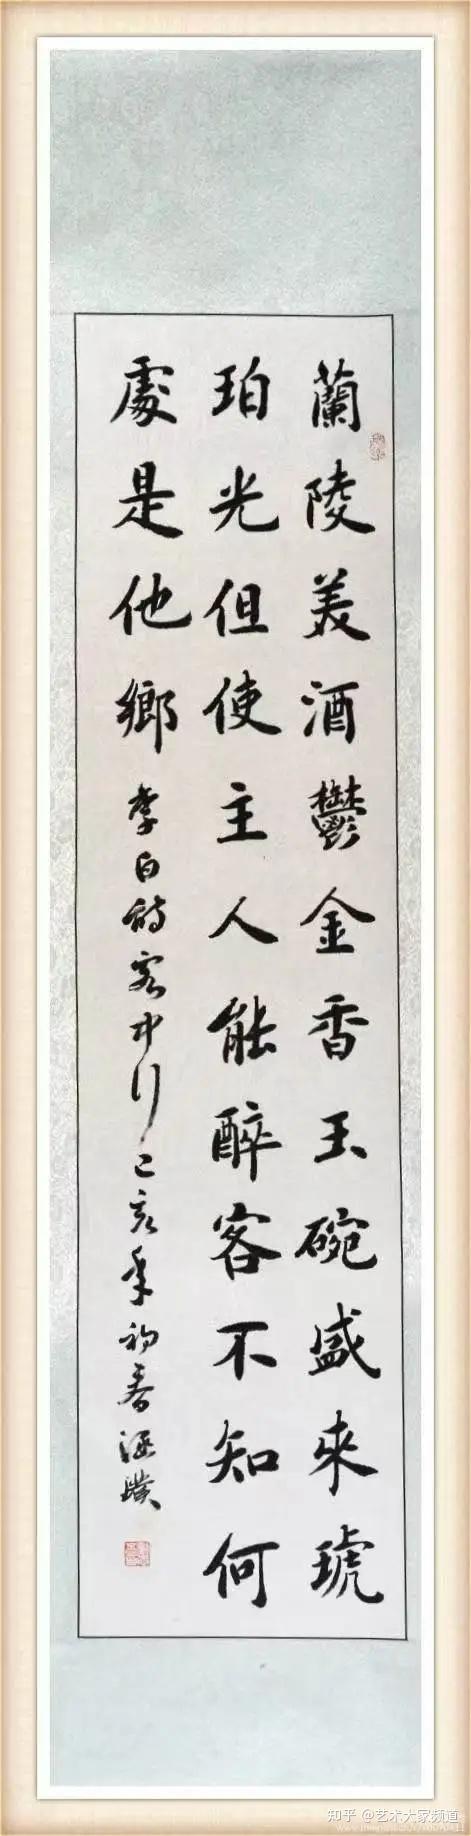 蘭陵美酒鬱金香玉碗盛來琥
珀光但使主人能醉客不知何
處是他鄉
李白詩客中行己亥年初春涵璞
知乎 @艺术大家频道